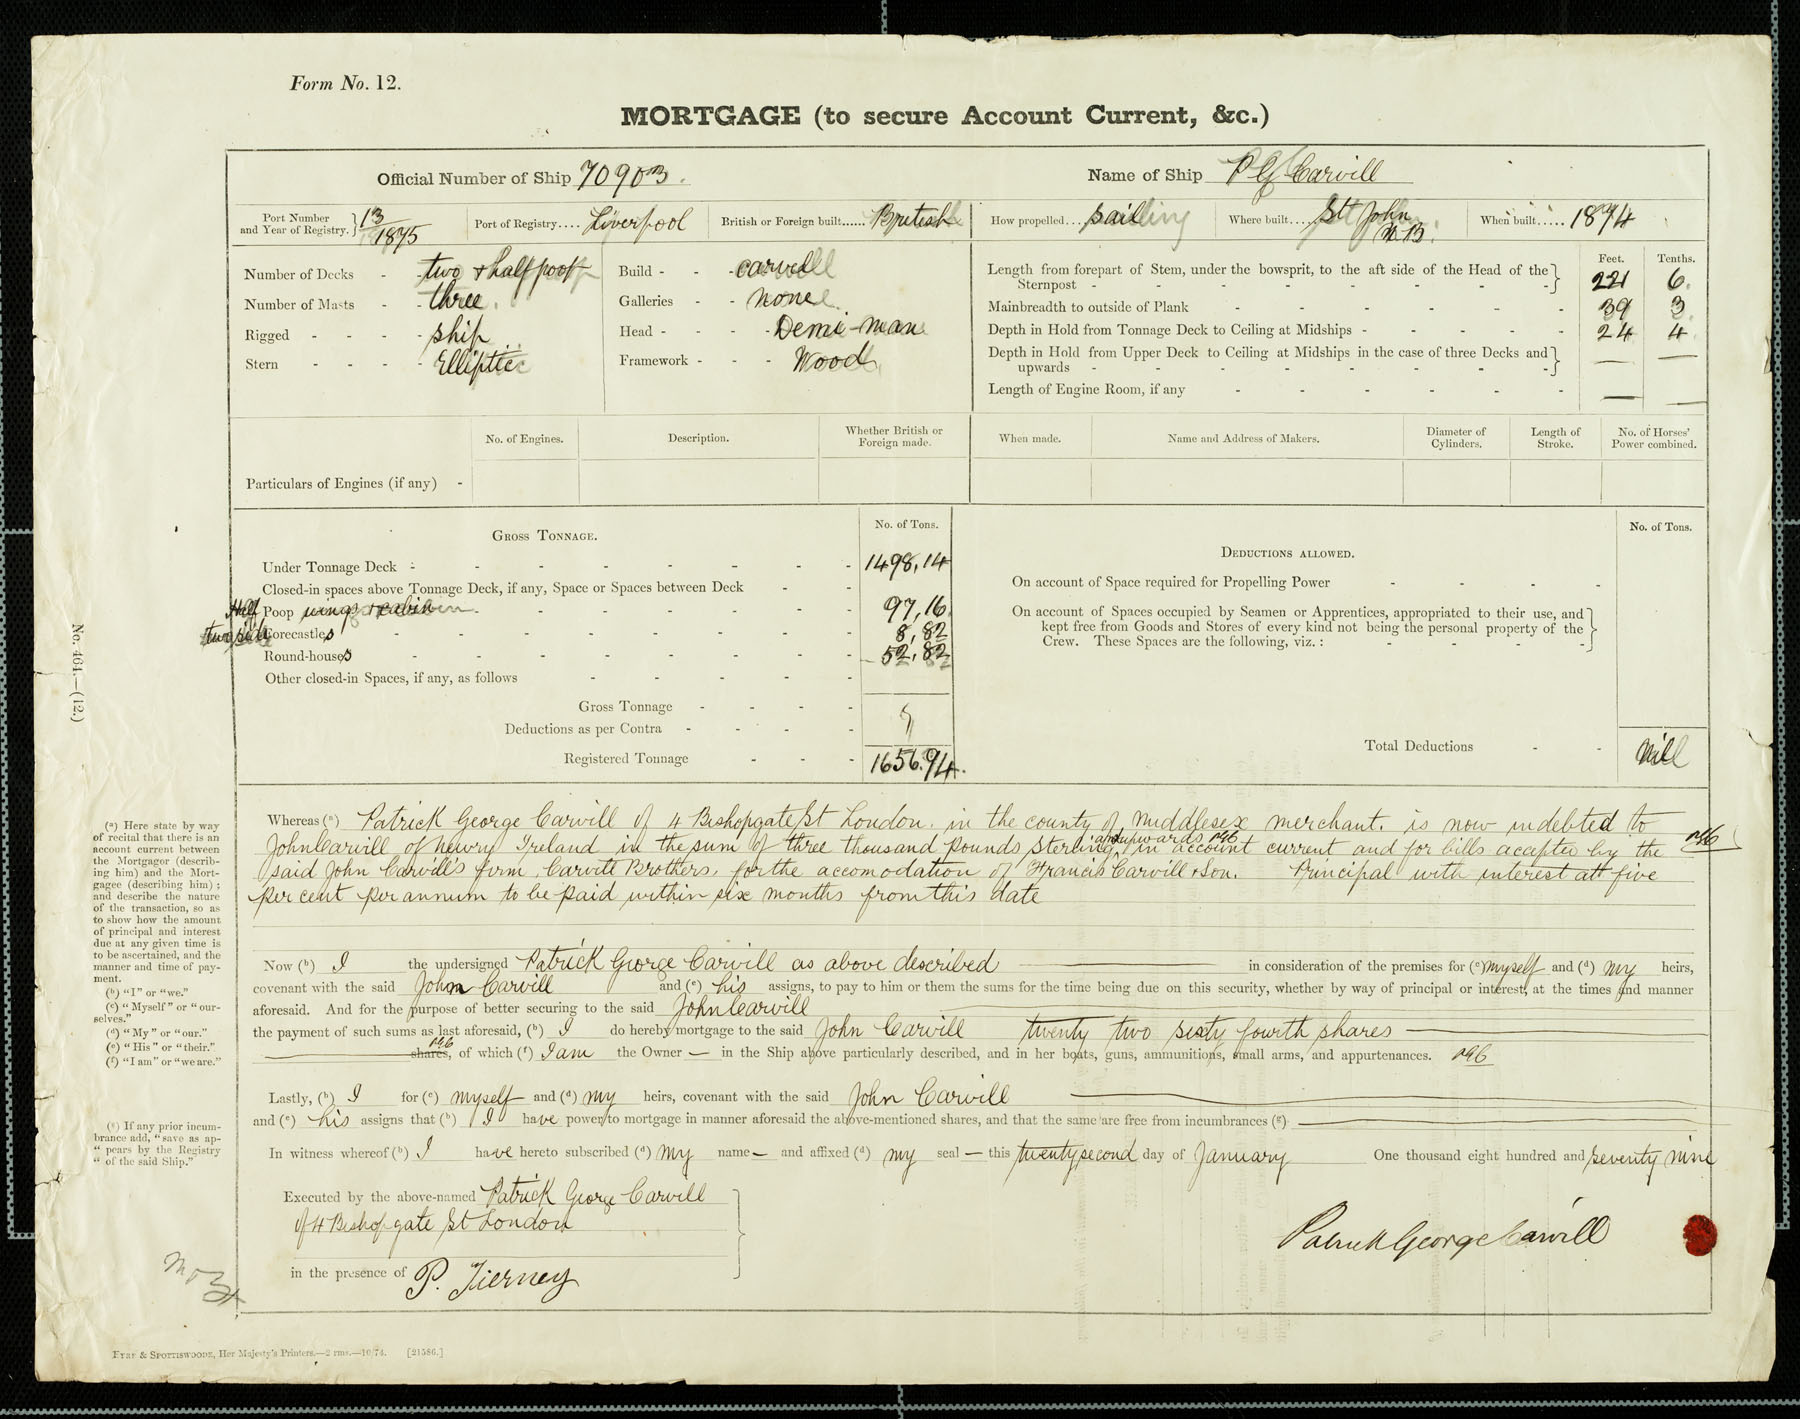 Form No. 12.
MORTGAGE (to secure Account Current, &c.)
Official Number of Ship 70903.
Name of Ship P G Carvill
Port Number and Year of Registry. } 13/1875
Port of Registry.... Liverpool
British or Foreign built...... British
How propelled.... sailing
Where built.... St John N.B.
When built..... 1874
Number of Decks - - two & half poop
Number of Masts - - three
Rigged - - - - ship
Stern - - - - Elliptic
Build - - - carvel
Galleries - - none
Head - - - Demi-man
Framework - - - Wood
Feet. Tenths.
Length from forepart of Stem, under the bowsprit, to the aft side of the Head of the Sternpost - - - - - - - - } 221 6.
Mainbreadth to outside of Plank - - - - - 39 3
Depth in Hold from Tonnage Deck to Ceiling at Midships - - - - - 24 4
Depth in Hold from Upper Deck to Ceiling at Midships in the case of three Decks and upwards - - - - - - - - } — —
Length of Engine Room, if any - - - - - — —
No. of Engines.
Description.
Whether British or Foreign made.
When made.
Name and Address of Makers.
Diameter of Cylinders.
Length of Stroke.
No. of Horses' Power combined.
Particulars of Engines (if any) -
GROSS TONNAGE.
No. of Tons.
Under Tonnage Deck - - - - - - - 1498,14
Closed-in spaces above Tonnage Deck, if any, Space or Spaces between Deck - -
Half Poop wings & cabin - - - - - - 97,16
two side Forecastles - - - - - - - 8,82
Round-houses - - - - - - - 52,82
Other closed-in Spaces, if any, as follows - - - - -
Gross Tonnage - - - -
Deductions as per Contra - - - -
Registered Tonnage - - - 1656.94.
DEDUCTIONS ALLOWED.
No. of Tons.
On account of Space required for Propelling Power - - - -
On account of Spaces occupied by Seamen or Apprentices, appropriated to their use, and
kept free from Goods and Stores of every kind not being the personal property of the
Crew. These Spaces are the following, viz. : - - - - }
Total Deductions - - Nill
Whereas (a) Patrick George Carvill of 4 Bishopgate St London. in the county of Middlesex merchant. is now indebted to
John Carvill of Newry Ireland in the sum of three thousand pounds sterling and upwards in account current and for bills accepted by the
said John Carvill's firm, Carvill Brothers, for the accomodation of Francis Carvill & Son. Principal with interest att five
per cent per annum to be paid within six months from this date
Now (b) I the undersigned Patrick George Carvill as above described — in consideration of the premises for (c) myself and (d) my heirs,
covenant with the said John Carvill and (e) his assigns, to pay to him or them the sums for the time being due on this security, whether by way of principal or interest, at the times and manner
aforesaid. And for the purpose of better securing to the said John Carvill
the payment of such sums as last aforesaid, (b) I do hereby mortgage to the said John Carvill twenty two sixty fourth shares —
— shares, of which (f) I am the Owner — in the Ship above particularly described, and in her boats, guns, ammunitions, small arms, and appurtenances.
Lastly, (b) I for (c) myself and (d) my heirs, covenant with the said John Carvill —
and (e) his assigns that (b) I have power to mortgage in manner aforesaid the above-mentioned shares, and that the same are free from incumbrances (g). —
In witness whereof (b) I have hereto subscribed (d) my name — and affixed (d) my seal — this twenty second day of January One thousand eight hundred and seventy nine
Executed by the above-named Patrick George Carvill
of 4 Bishopgate St London
in the presence of P. Tierney
Patrick George Carvill
(a) Here state by way
of recital that there is an
account current between
the Mortgagor (describ-
ing him) and the Mort-
gagee (describing him) ;
and describe the nature
of the transaction, so as
to show how the amount
of principal and interest
due at any given time is
to be ascertained, and the
manner and time of pay-
ment.
(b) "I" or "we."
(c) "Myself" or "our-
selves."
(d) "My" or "our."
(e) "His" or "their."
(f) "I am" or "we are."
(g) If any prior incum-
brance add, "save as ap-
"pears by the Registry
"of the said Ship."
No. 464.—(12.)
EYRE & SPOTTISWOODE, Her Majesty's Printers.—2 rms.—10/74. [21586.]